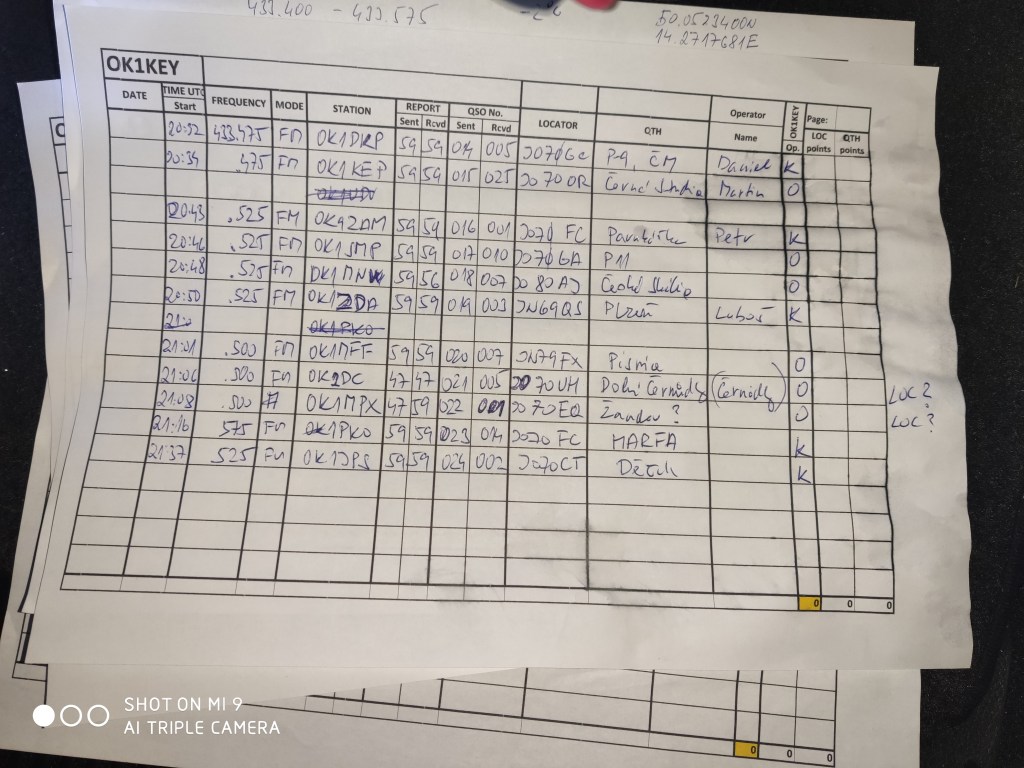 433.400 - 433.575
50.0523400N
14.2717681E
OK1KEY
DATE TIME UTC Start FREQUENCY MODE STATION REPORT Sent Rcvd QSO No. Sent Rcvd LOCATOR QTH Operator Name OK1KEY Op. Page: LOC points QTH points
433.475 FM 59 59 014 005 P-9, ČM Daniel K
20:39 .475 FM OK1KEP 59 59 015 025 JO70OR Martin O
20:43 .525 FM 59 59 016 001 JO70 FC Petr K
20:46 .525 FM 59 59 017 010 JO70GA P11 O
20:48 .525 FM 59 56 018 007 JO80AJ O
20:50 .525 FM OK1ZDA 59 59 019 003 JN69QS Plzeň Luboš K
21:0 OK1PKO
21:01 .500 FM OK1MFF 59 59 020 007 JN79FX O
21:06 .500 FM 47 47 021 005 JO70UH Dolní O
21:08 .500 OK1MPX 47 59 022 001 JO70EQ Žandov ? O LOC ?
21:16 575 FM OK1PKO 59 59 023 014 JO70 FC MARFA K LOC ?
21:37 .525 FM OK1JPS 59 59 024 002 JO70CT K
0 0 0
0 0 0
SHOT ON MI 9
AI TRIPLE CAMERA